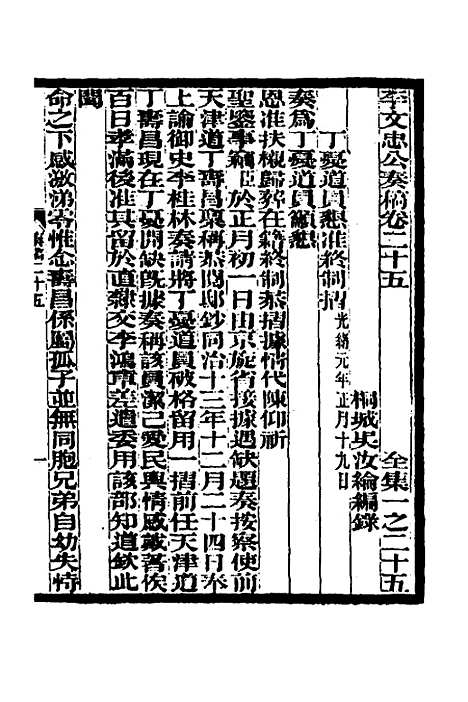 李文忠公奏稿卷二十五 全集一之二十五
桐城吳汝綸編錄
丁憂道員懇准終制摺 光緒元年正月十九日
奏為丁憂道員籲懇
恩准扶櫬歸葬在籍終制恭摺據情代陳仰祈
聖鑒事竊臣於正月初一日由京旋省接據遇缺題奏按察使前
天津道丁壽昌稟稱恭閱邸鈔同治十三年十二月二十四日奉
上諭御史李桂林奏請將丁憂道員破格留用一摺前任天津道
丁壽昌現在丁憂開缺既據奏稱該員潔己愛民輿情感戴著俟
百日孝滿後准其留於直隸交李鴻章差遣委用該部知道欽此
聞
命之下感激涕零惟念壽昌係屬孤子並無同胞兄弟自幼失恃
奏稿二十五 一